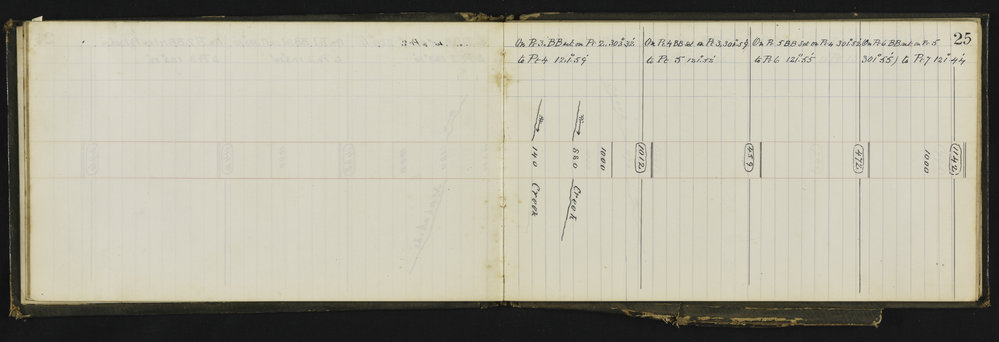 25
On Pt 3. BB set on Pt 2. 303°32'
to Pt 4 121°.59'
On Pt 4 BB set on Pt 3, 301.59
to Pt 5 121°.52'
On Pt 5 BB Set on Pt 4 301°52'
to Pt 6 121°.55'
On Pt 6 BB set on Pt 5
301°55') to Pt 7 121°.44'
140 Creek
580 Creek
1000
1012
459
472
1000
1142